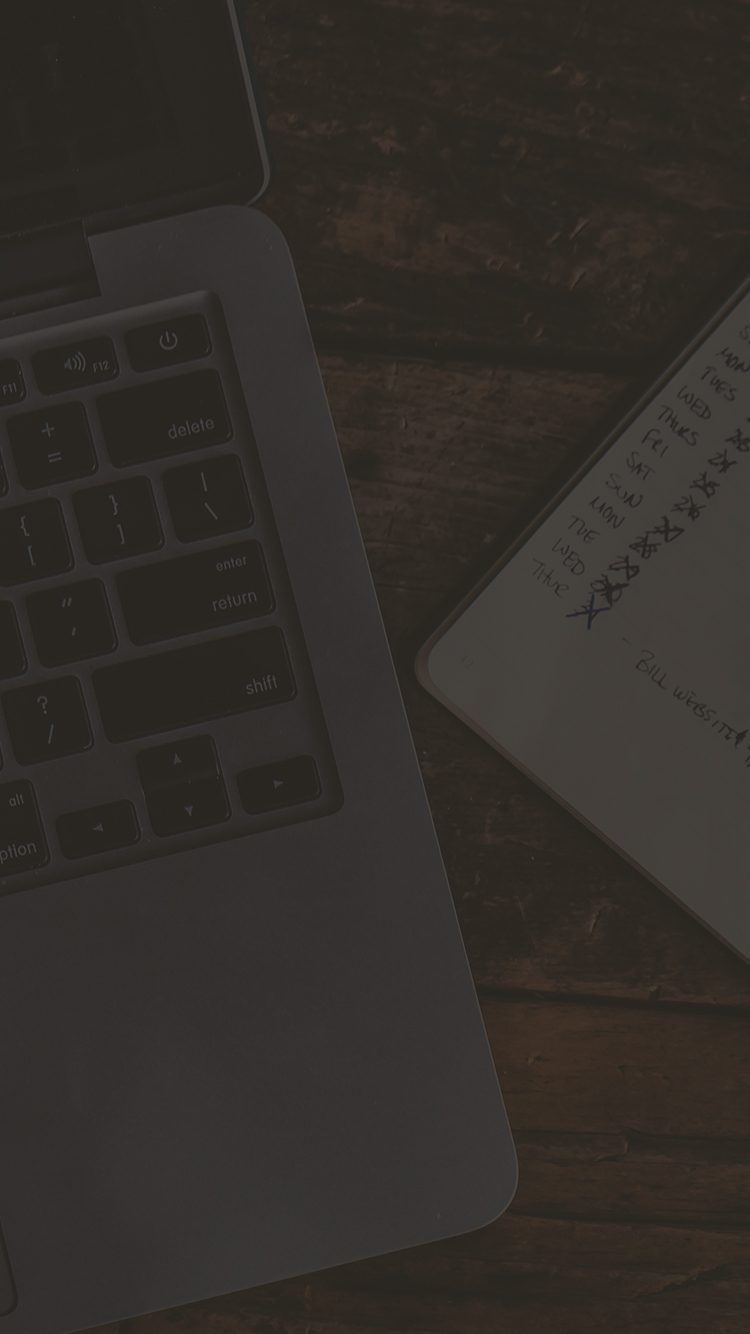 F11
F12
+
=
delete
{
[
}
]
|
\
enter
return
"
'
shift
?
/
alt
ption
MON
TUES
WED
THURS
FRI
SAT
SUN
MON
TUE
WED
- BILL WEBSITE